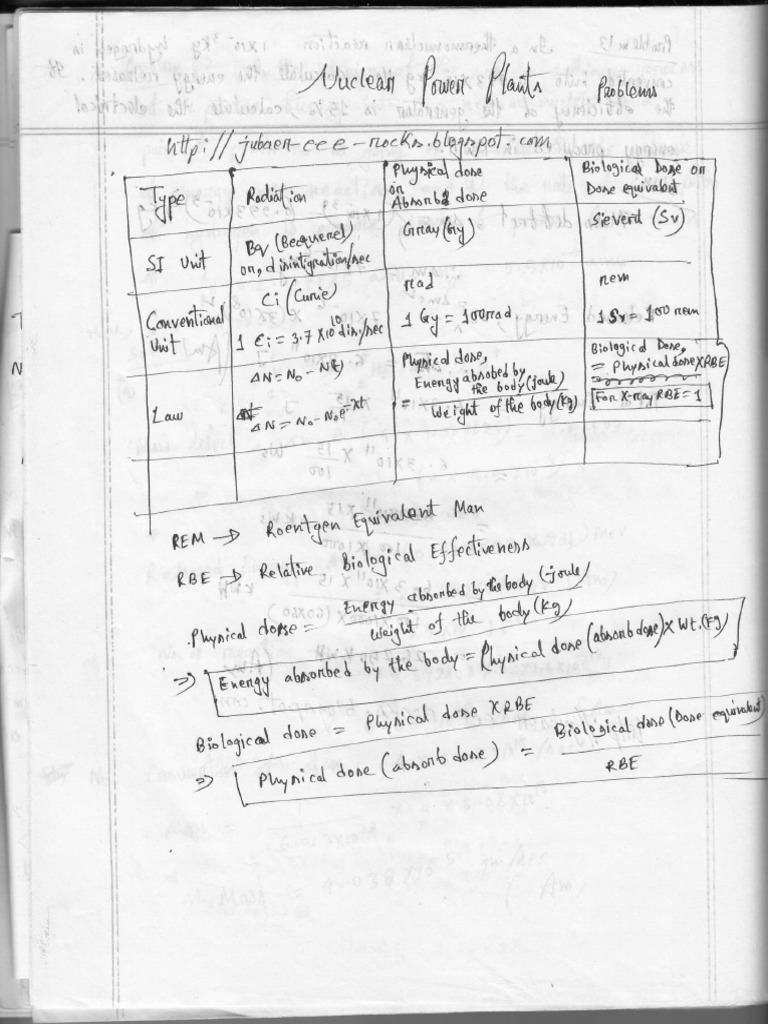 Nuclear Power Plants Problems
http://jubaer-eee-rocks.blogspot.com
Type
Radiation
Physical dose
or
Absorbd dose
Biological Dose or
Dose equivalent
SI Unit
Bq (Becquerel)
or, disintigration/sec
Grray (Gy)
Sieverd (Sv)
Conventional
Unit
Ci (Curie)
1 Ci = 3.7 X 10^10 dis./sec
rad
1 Gy = 100 rad
rem
1 Sv = 100 rem
Law
ΔN = N₀ - N(t)
ΔN = N₀ - N₀e^-λt
Physical dose,
= Energy absobed by the body (joule) / Weight of the body (kg)
Biological Dose,
= Physical dose X RBE
For X-ray RBE = 1
REM → Roentgen Equivalent Man
RBE → Relative Biological Effectiveness
Physical dopse = Energy absorbed by the body (joule) / Weight of the body (kg)
⇒ Energy absorbed by the body = Physical dose (absorb dose) X Wt. (kg)
Biological dose = Physical dose X RBE
⇒ Physical dose (absorb dose) = Biological dose (Dose equivalent) / RBE